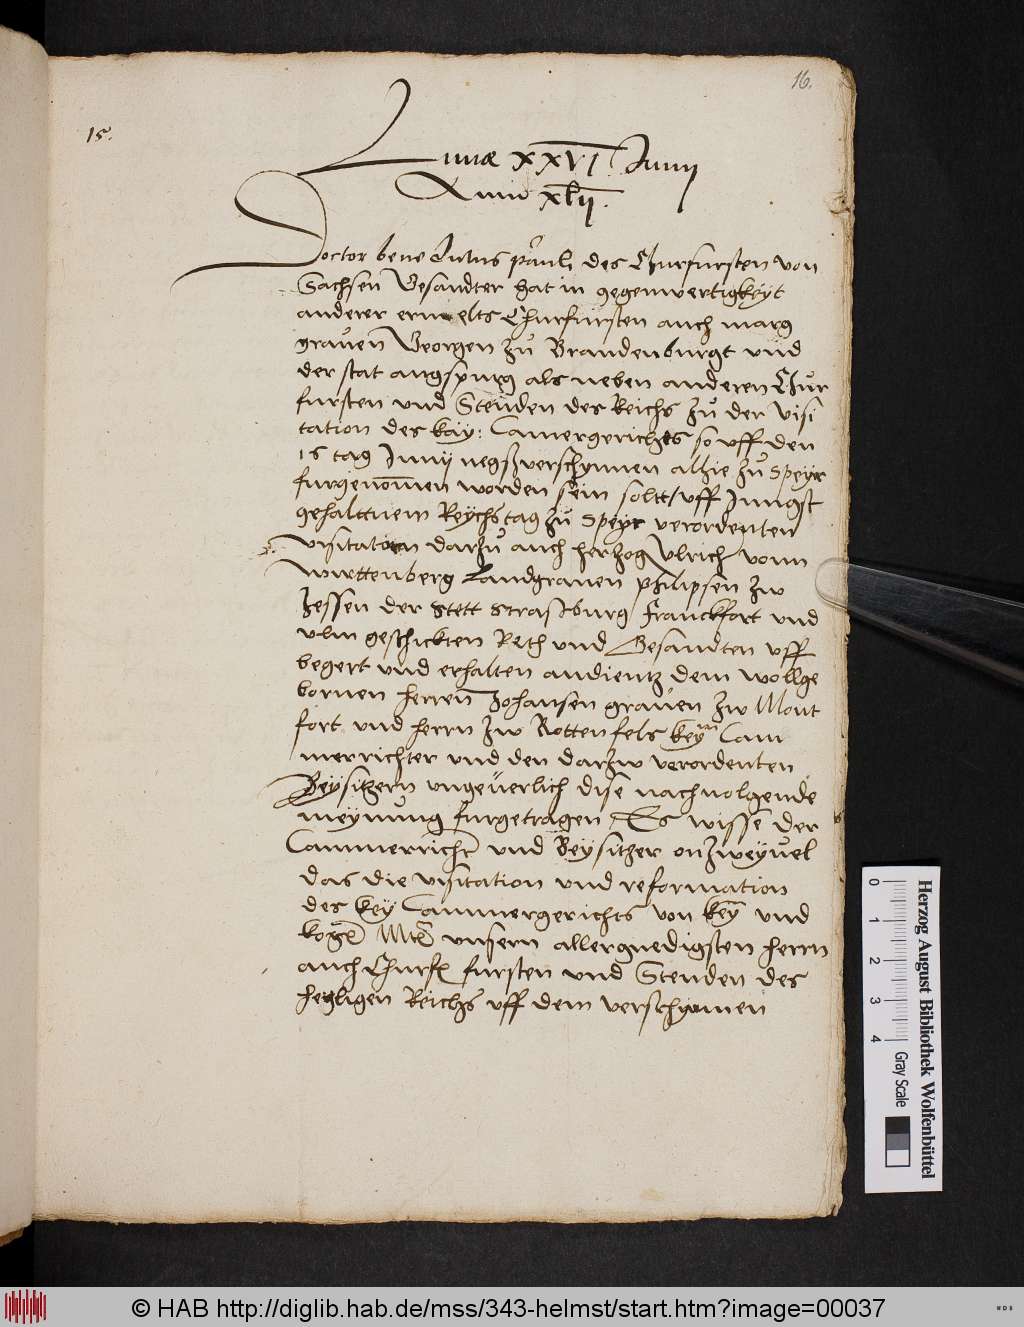 16.
15.
Lunæ XXVI Junij
Anni xlij.
Doctor benedictus pauli des Churfursten von
Sachsen Gesandter hat in gegenwertigkeyt
anderer erwelts Churfursten auch marg
grauen Georgen zu Brandenburgt und
der stat augspurg als neben anderen Chur
fursten und Stenden des Reichs zu der visi
tation des kay: Camergerichts so uff den
16 tag Junij negst verschynnen alhie zu Speyr
furgenommen worden sein soltt/ uff Jungst
gehalttnem Reychstag zu Speyr verordenten
visitatorn darzu auch herzog Ulrich vonn
Wirttenberg Landgrauen philipsen zw
hessen der stett strassburg Franckfort und
vlm geschickten Reth und Gesandten uff
begert und erhalten audientz dem wollge
bornen herren Johansen grauen zw Mont
fort und herrn zw Rottenfels key Cam
merrichter und den darzw verordenten
Beysitzern ungeuerlich dise nachuolgende
meynung furgetragen, Es wisse der
Cammerricht und Beysitzer onzweyuel
das die visitation und reformation
des key Cammergerichts von key und
kog Mt unsern allergnedigsten herrn
auch Churf fursten und Stenden des
heyligen Reichs uff dem verschynnen
Herzog August Bibliothek Wolfenbüttel
0 1 2 3 4
Gray Scale
© HAB http://diglib.hab.de/mss/343-helmst/start.htm?image=00037
WDB